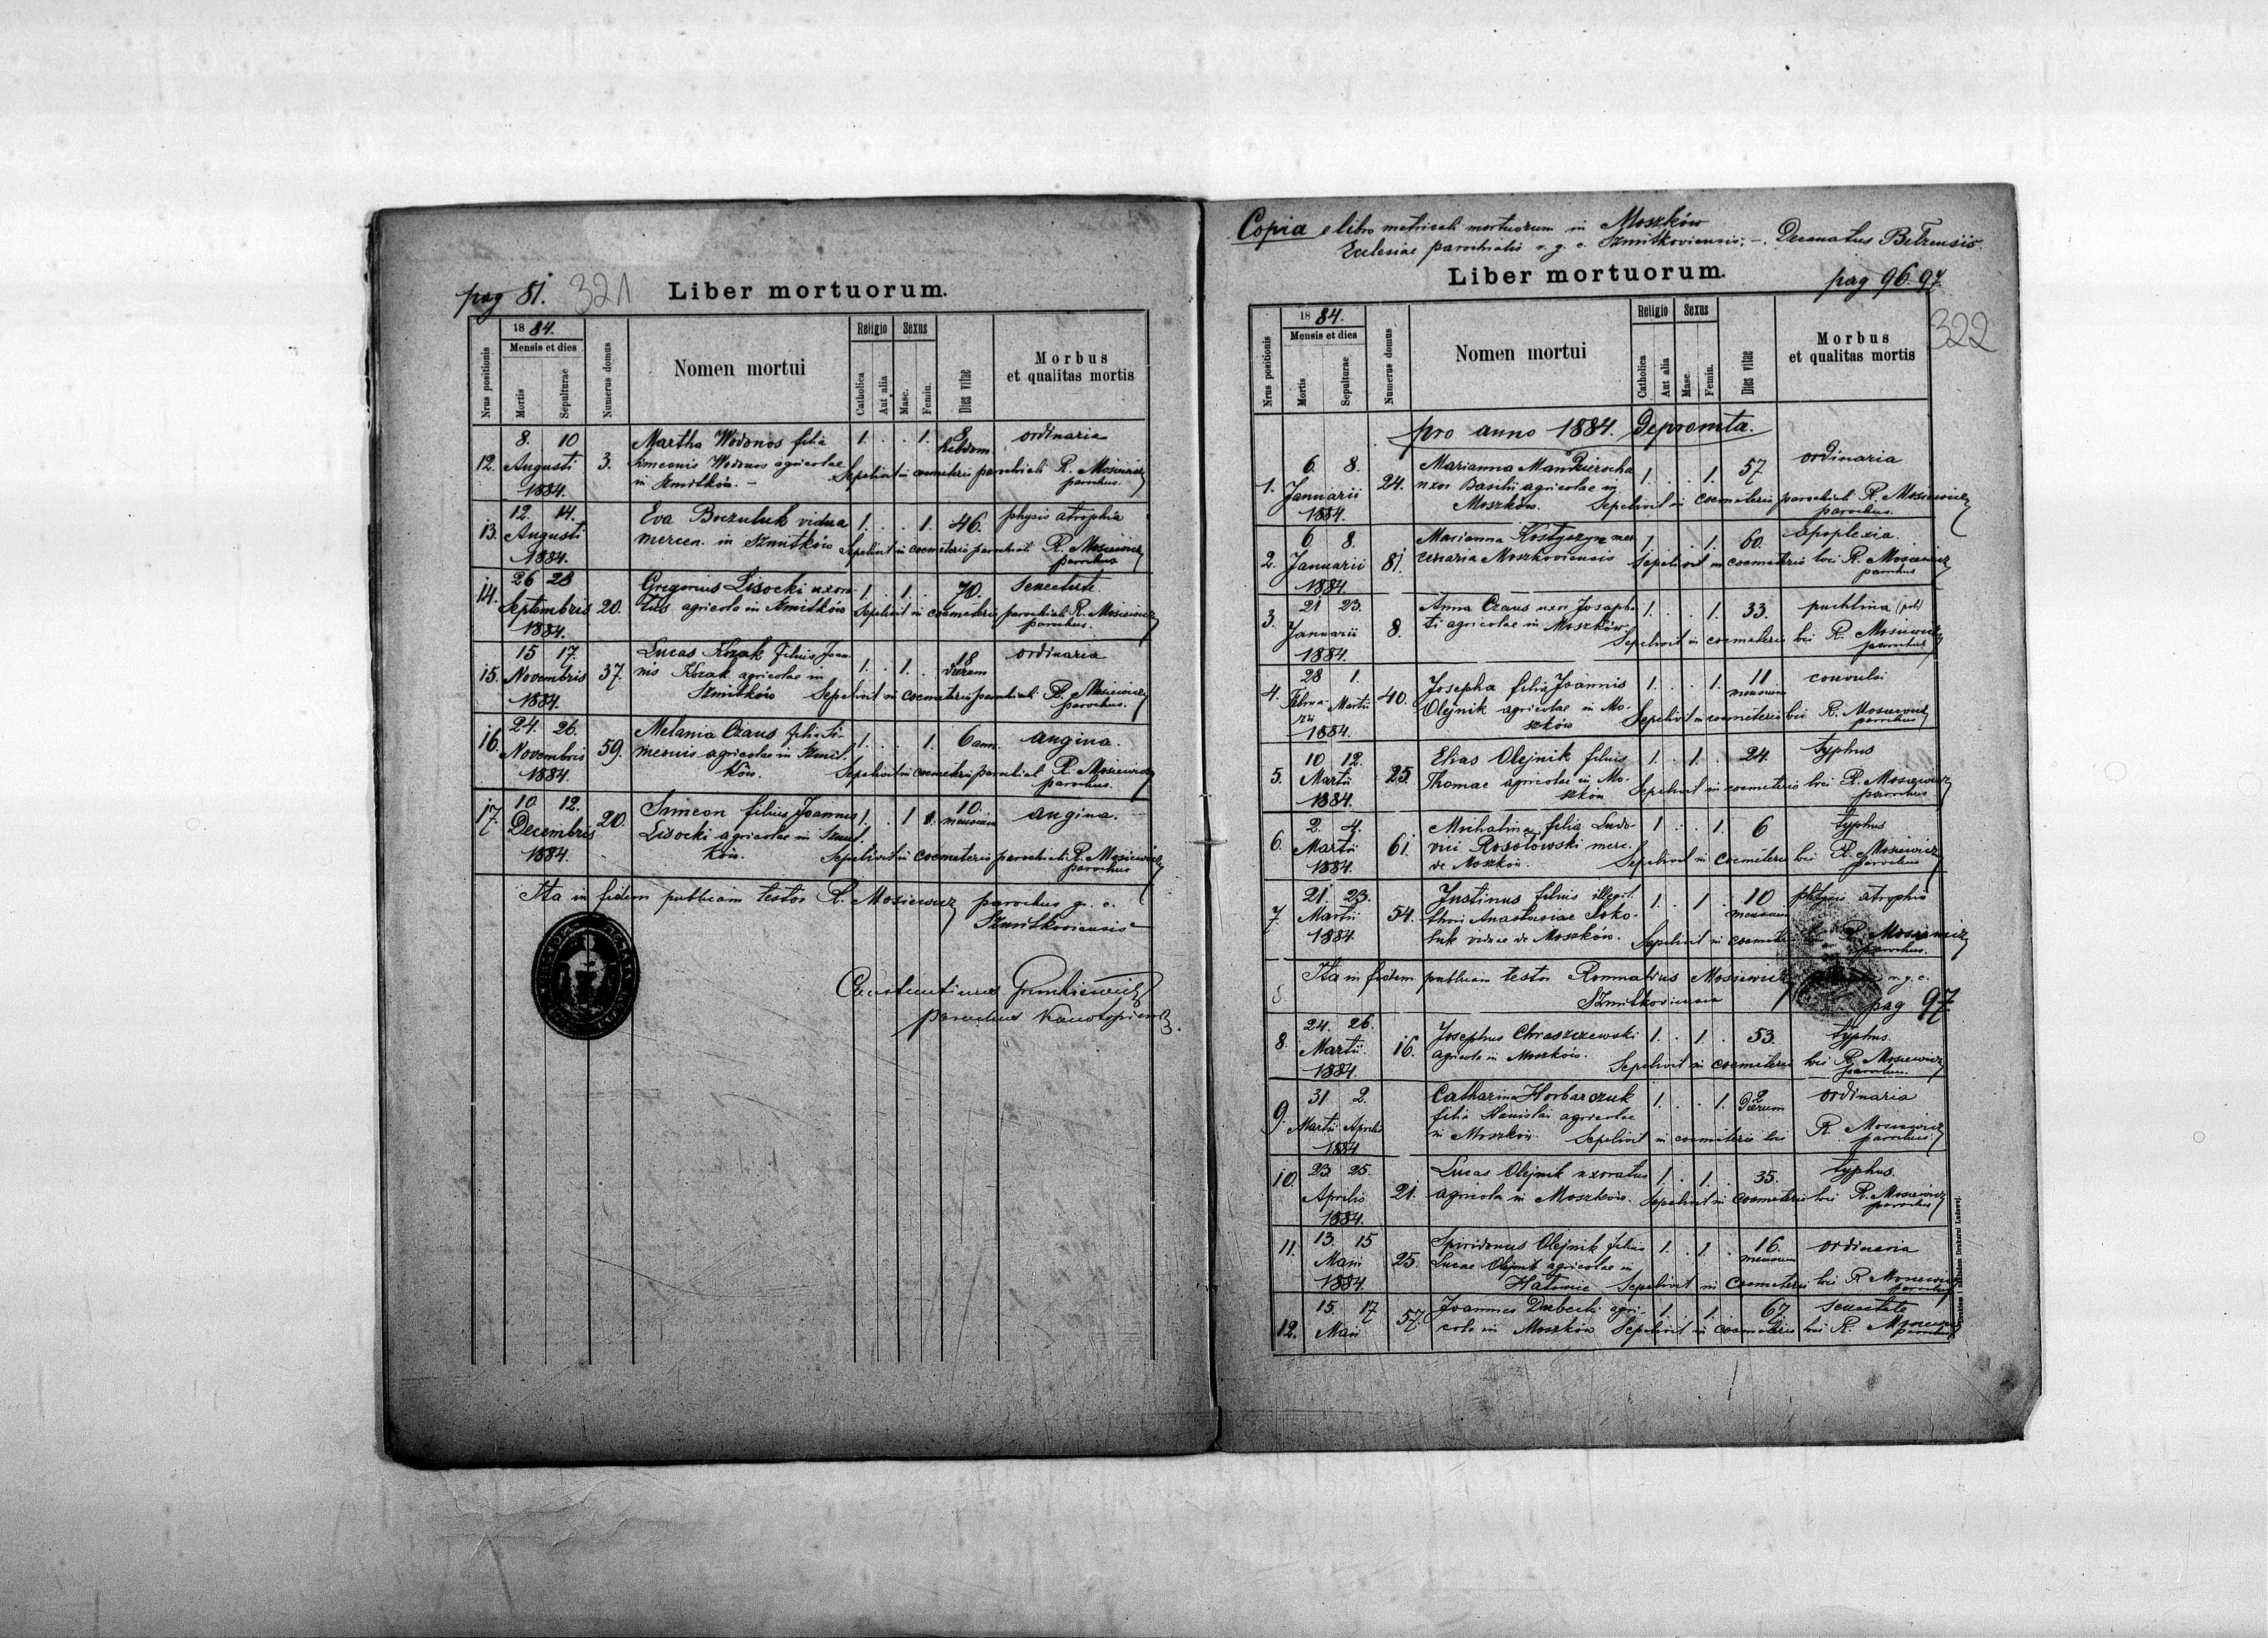 pag 81. 321 Liber mortuorum.
Nrus positionis
1884.
Mensis et dies
Mortis
Sepulturae
Numerus domus
Nomen mortui
Religio
Catholica
Aut alia
Sexus
Masc.
Femin.
Dies vitae
Morbus
et qualitas mortis
12. 8. 10 Augusti 1884. 3. Martha Wodonos filia 1. . . 1. 8 hebdom. ordinaria
Simeonis Wodonos agricolae
in Szmitków. – Sepelivit in coemeterio parochiali R. Mosiewicz
parochus.
13. 12. 14. Augusti 1884. Eva vidua 1. . . 1. 46. physis atrophia
mercen. in Szmitków Sepelivit in coemeterio parochiali R. Mosiewicz
parochus
14. 26 28 Septembris 1884. 20. Gregorius Lisocki uxora- 1. . 1. . 70. senectute.
tus agricola in Szmitków Sepelivit in coemeterio parochiali R. Mosiewicz
parochus.
15. 15 17 Novembris 1884. 37. Lucas Kozak filius Joan- 1. . 1. . 18 dierum ordinaria
nis Kozak agricolae in
Szmitków Sepelivit in coemeterio parochiali R. Mosiewicz
parochus.
16. 24. 26. Novembris 1884. 59. Melania Czaus filia Si- 1. . . 1. 6 ann. angina.
meonis agricolae in Szmit-
ków. Sepelivit in coemeterio parochiali R. Mosiewicz
parochus.
17. 10. 12. Decembris 1884. 20. Simeon filius Joannis 1. . 1 10. mensium angina.
Lisocki agricolae in Szmit-
ków. Sepelivit in coemeterio parochiali R. Mosiewicz
parochus
Ita in fidem publicam testor R. Mosiewicz parochus g. c.
Szmitkoviensis
parochus
Copia e libro metricali mortuorum in Moszków
Ecclesiae parochialis r. g. c. Szmitkoviensis; – Decanatus Belzensis.
Liber mortuorum. pag 96. 97
322
Nrus positionis
1884.
Mensis et dies
Mortis
Sepulturae
Numerus domus
Nomen mortui
Religio
Catholica
Aut alia
Sexus
Masc.
Femin.
Dies vitae
Morbus
et qualitas mortis
pro anno 1884. Depromta.
1. 6. 8. Januarii 1884. 24. Marianna 1. . . 1. 57. ordinaria
uxor Basilii agricolae in
Moszków. Sepelivit in coemeterio parochiali R. Mosiewicz
parochus.
2. 6. 8. Januarii 1884. 81. Marianna Kostyszyn mer 1. . . 1. 60. apoplexia.
cenaria Moszkoviensis Sepelivit in coemeterio loci R. Mosiewicz
parochus
3. 21 23. Januarii 1884. 8. Anna Czaus uxor Josapha- 1. . . 1. 33. puchlina (pol)
ti agricolae in Moszków. Sepelivit in coemeterio loci R. Mosiewicz
parochus
4. 28 1. Februa-rii Martii 1884. 40. Josepha filia Joannis 1. . . 1. 11 mensium convulsi
Olejnik agricolae in Mo-
szków Sepelivit in coemeterio loci R. Mosiewicz
parochus
5. 10. 12. Martii 1884. 25. Elias Olejnik filius 1. . 1. . 24. typhus
Thomae agricolae in Mo-
szków Sepelivit in coemeterio loci R. Mosiewicz
parochus
6. 2. 4. Martii 1884. 61. Michalina filia Ludo- 1 . . 1. 6 typhus
vici Rosołowski merc.
de Moszków. Sepelivit in coemeterio loci R. Mosiewicz
parochus
7. 21. 23. Martii 1884. 54. Justinus filius illegit. 1. . 1 . 10 mensium physis atrophia
thori Anastasiae Soko-
luk viduae de Moszków. Sepelivit in R. Mosiewicz
parochus.
Ita in fidem publicam testor Romualdus Mosiewicz r. g. c.
Szmitkoviensis pag 97.
8. 24. 26. Martii. 1884. 16. Josephus Chraszczewski 1. . 1. . 53. typhus.
agricola in Moszków. Sepelivit in coemeterio loci R. Mosiewicz
parochus.
9. 31 2. Martii Aprilis 1884 Catharina Horbarczuk 1. . . 1. 2 dierum ordinaria
filia Stanislai agricolae
in Moszków. Sepelivit in coemeterio loci R. Mosiewicz
parochus.
10. 23. 25. Aprilis 1884. 21. Lucas Olejnik uxoratus 1. . 1. . 35. typhus.
agricola in Moszków. Sepelivit in coemeterio loci R. Mosiewicz
parochus
11. 13. 15 Maii 1884. 25. Spiridonus Olejnik filius 1. . 1. . 16. mensium ordinaria
Lucae Olejnik agricolae in
Sepelivit in coemeterio loci R Mosiewicz
parochus
12. 15. 17 Maii 57. Joannes agri- 1. . 1. . 67 senectute
cola in Moszków Sepelivit in coemeterio loci R. Mosiewicz
parochus